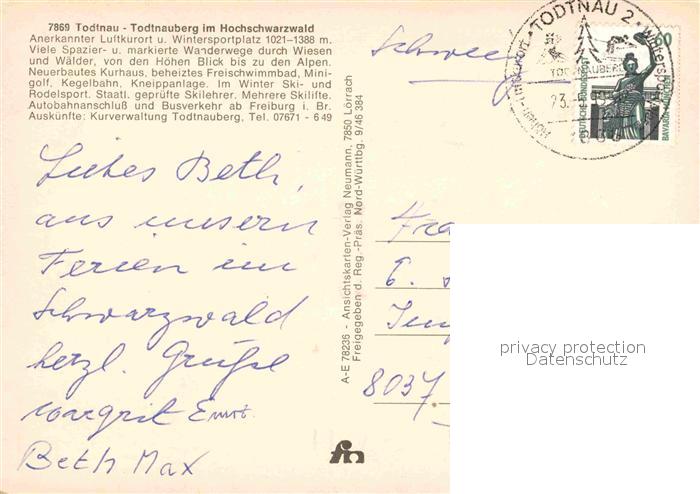 7869 Todtnau - Todtnauberg im Hochschwarzwald
Anerkannter Luftkurort u. Wintersportplatz 1021–1388 m.
Viele Spazier- u. markierte Wanderwege durch Wiesen
und Wälder, von den Höhen Blick bis zu den Alpen.
Neuerbautes Kurhaus, beheiztes Freischwimmbad, Mini-
golf, Kegelbahn, Kneippanlage. Im Winter Ski- und
Rodelsport. Staatl. geprüfte Skilehrer. Mehrere Skilifte.
Autobahnanschluß und Busverkehr ab Freiburg i. Br.
Auskünfte: Kurverwaltung Todtnauberg, Tel. 07671 - 649
Liebes Beth,
aus unsern
Ferien im
Schwarzwald
herzl. Grüsse
Margrit Ernst
Beth Max
A-E 78236 - Ansichtskarten-Verlag Neumann, 7850 Lörrach
Freigegeben d. Reg.-Präs. Nord-Württbg. 9/46 384
fm
Schweiz
TODTNAU 2
TODTNAUBERG
23.
60
DEUTSCHE BUNDESPOST
BAVARIA MÜNCHEN
6.
8037
privacy protection
Datenschutz